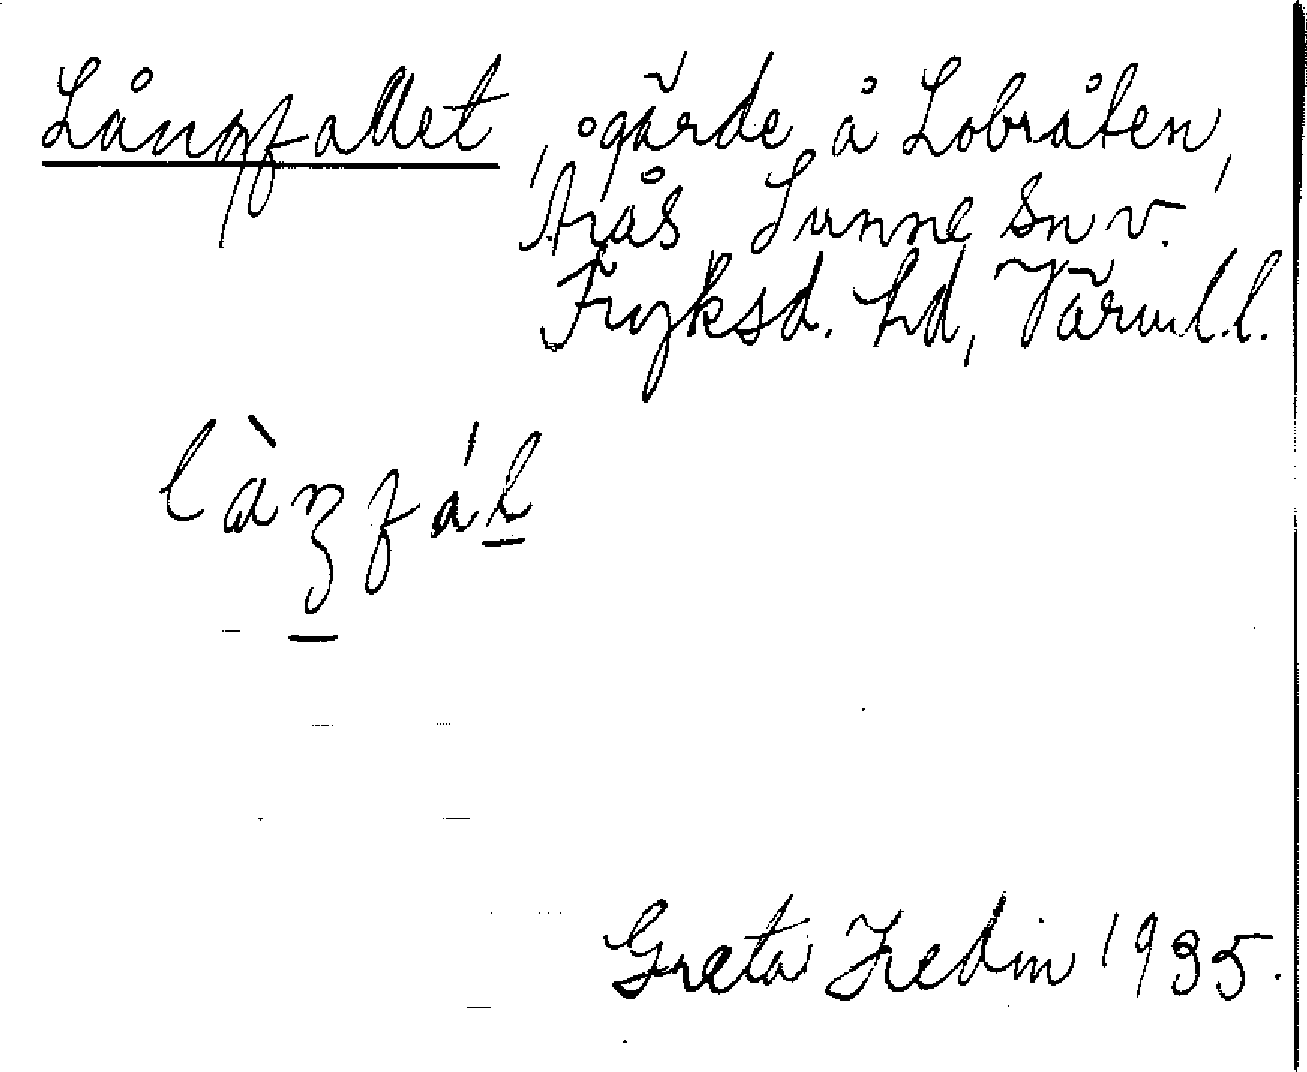 Långfallet, gärde å Lobråten,
Arås Sunne sn v.
Fryksd. hd, Värml. l.
làŋfál
Greta Hedin 1935.